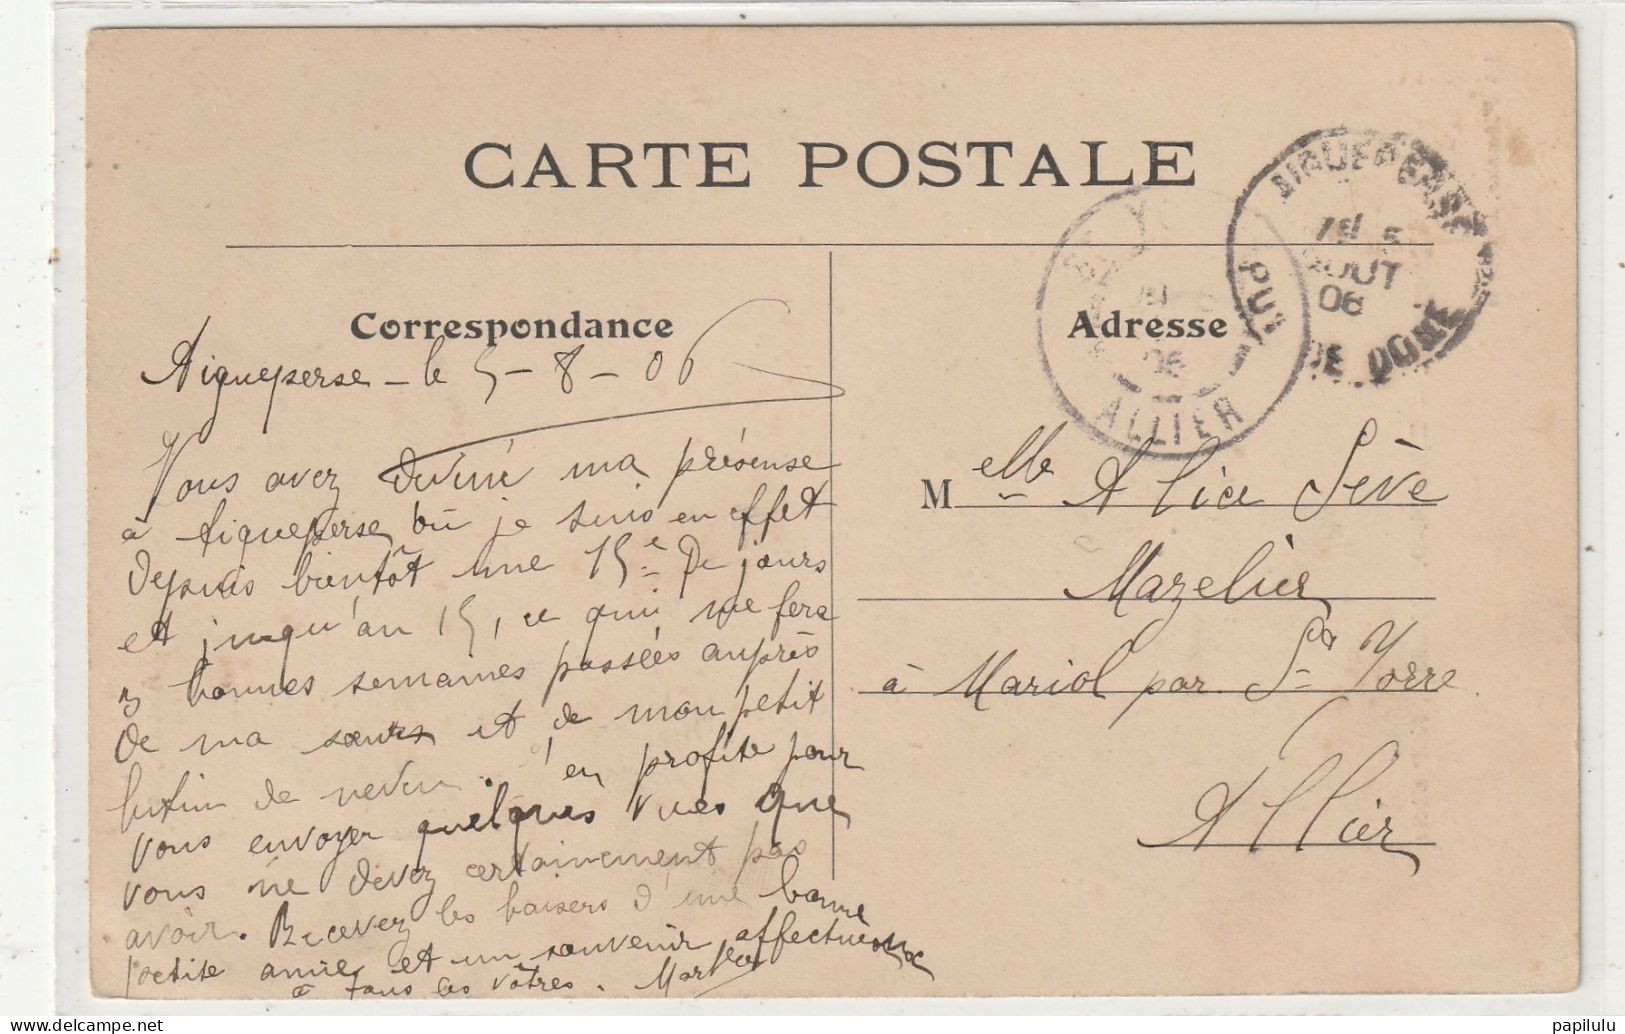 CARTE POSTALE
AIGUEPERSE
15
5
AOUT
06
PUY DE DOME
06
ALLIER
Correspondance
Adresse
Aigueperse - le 5 - 8 - 06
Vous avez deviné ma présense
à Aigueperse où je suis en effet
depuis bientôt une 15e de jours
et jusqu'au 15, ce qui me fera
3 bonnes semaines passées auprès
de ma sœur et de mon petit
lutin de neveu. J'en profite pour
vous envoyer quelques vues que
vous ne devez certainement pas
avoir. Recevez les baisers d'une bonne
petite amie et un souvenir affectueux
à tous les vôtres.
Melle Alice Sève
Mazelier
à Mariol par St Yorre
Allier
papilulu